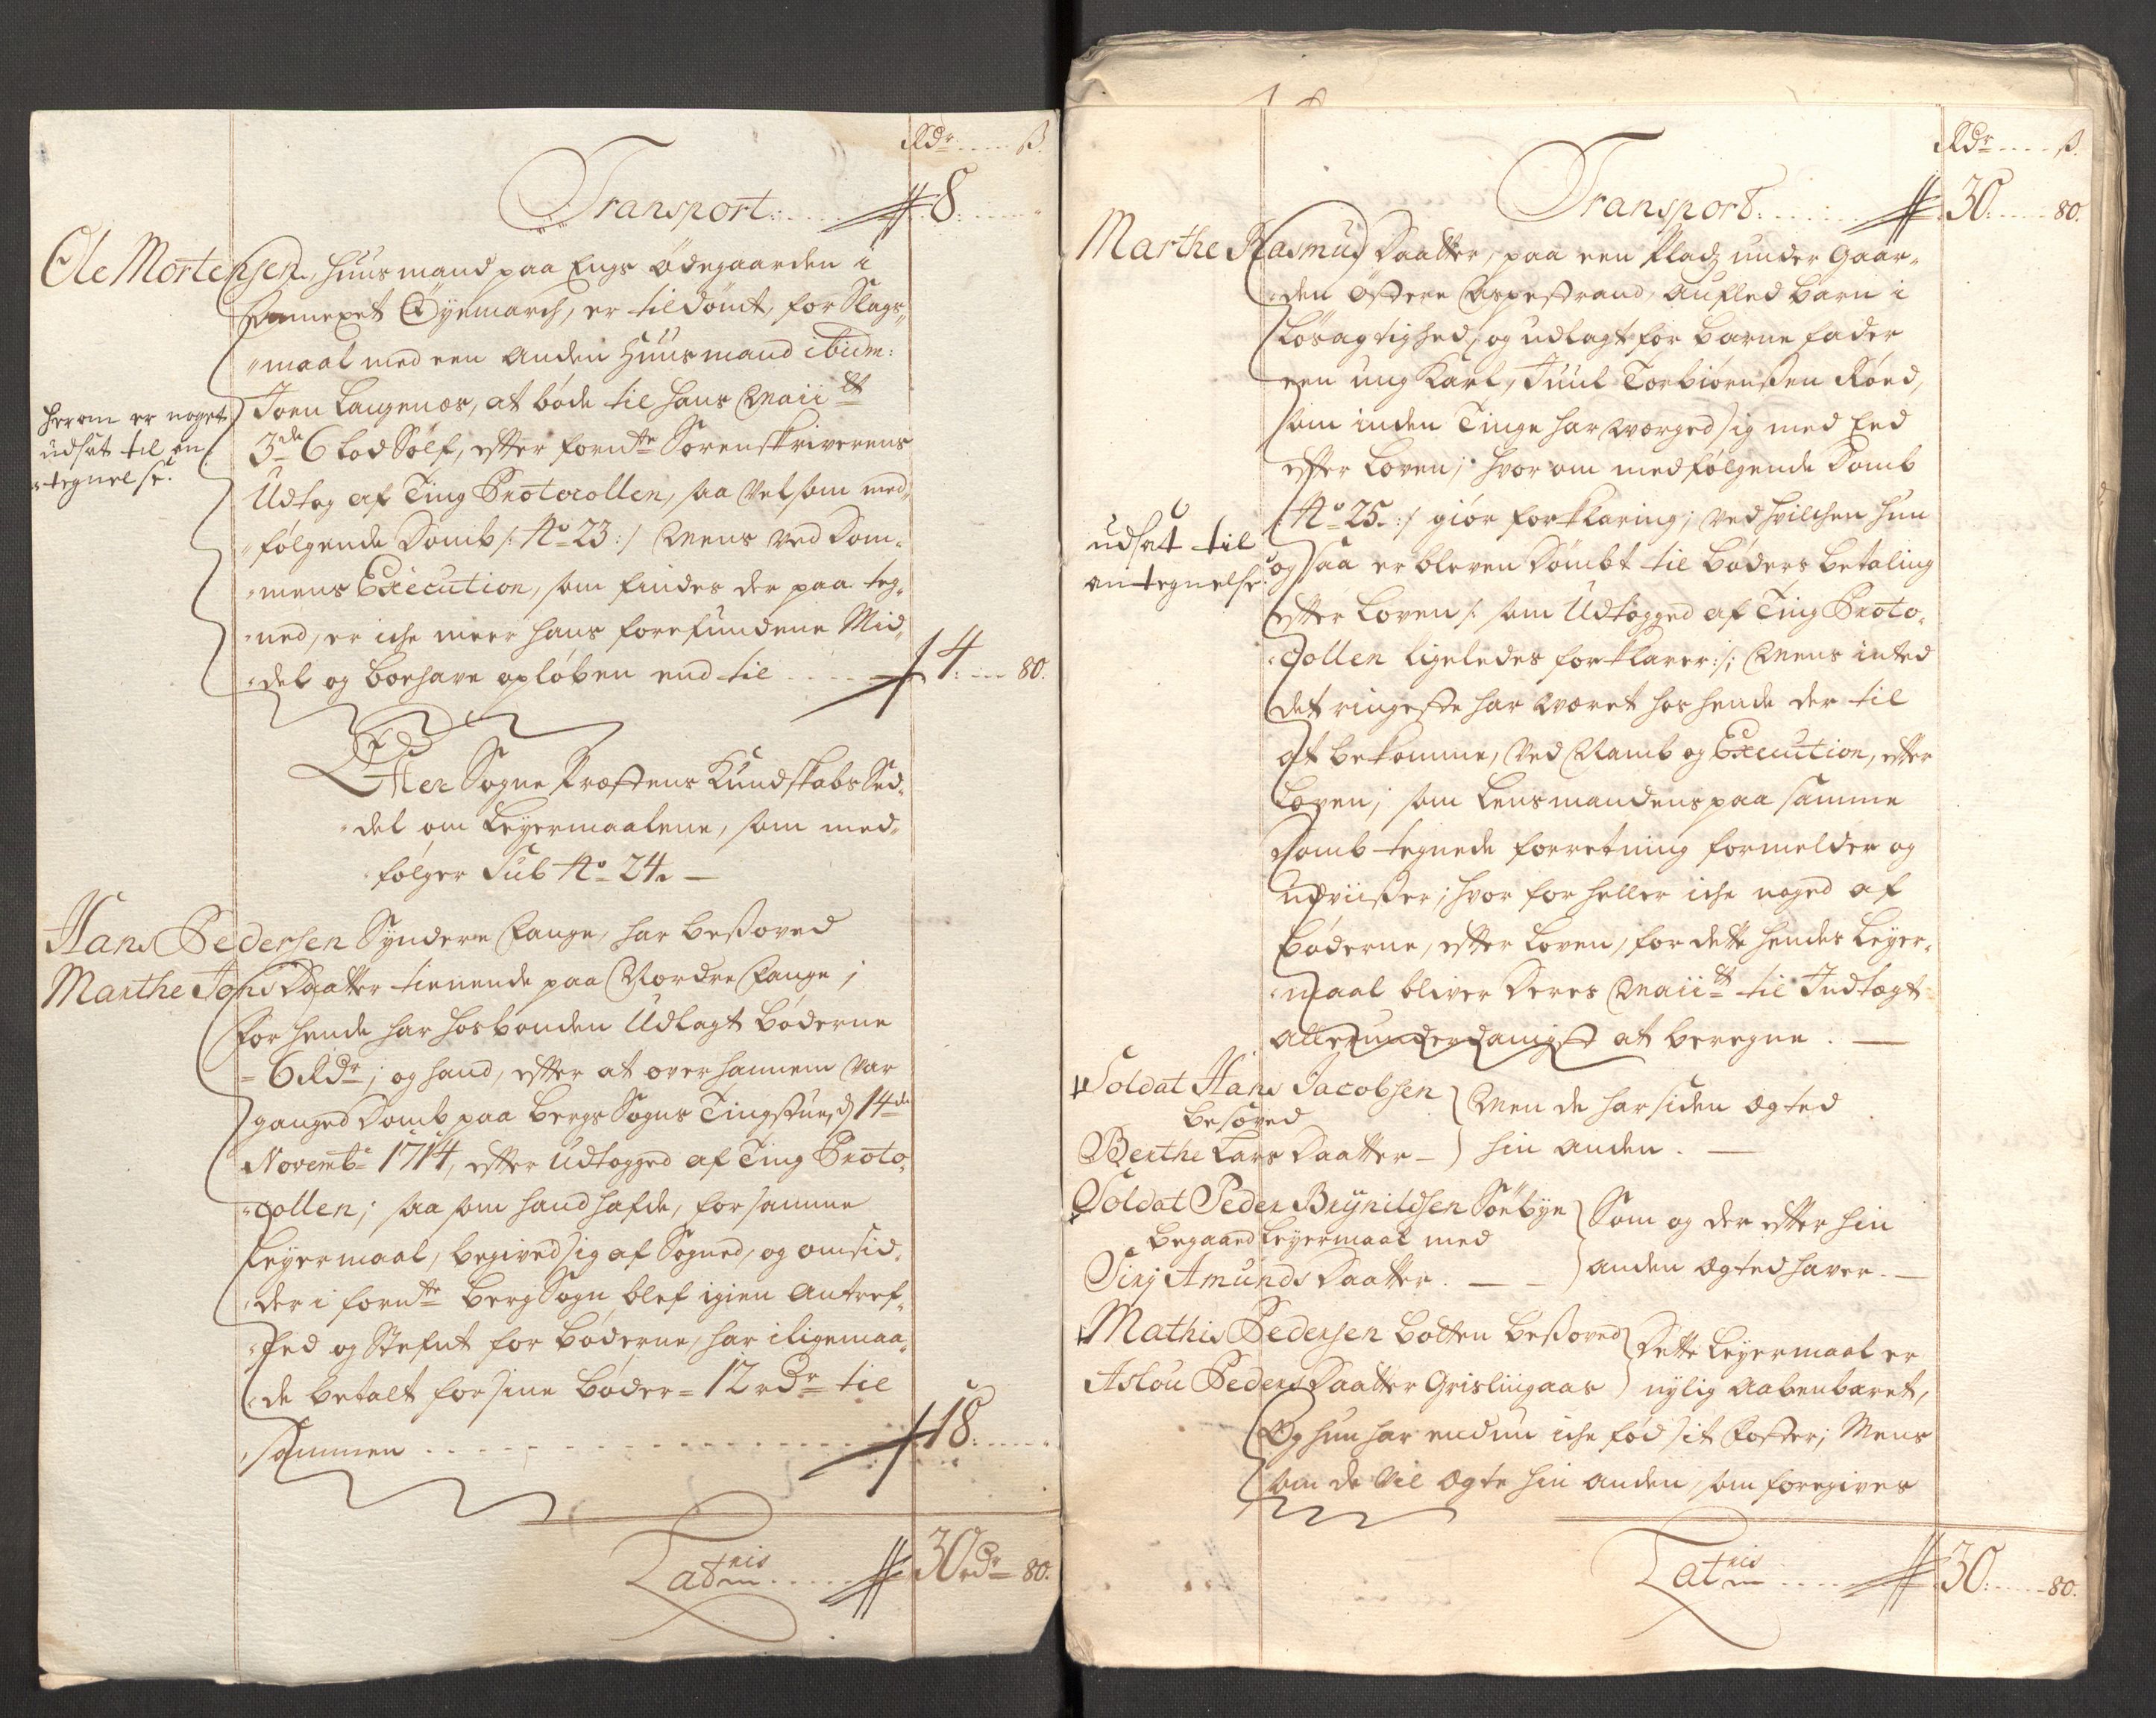 Rdr ..... ß.
Transport: ..... 8. .....
Ole Mortensen, Huusmand paa Engs Ödegaarden i
Annexet Öyemarch, er tildömt, for Slags-
maal med een anden Huusmand ibidm:
Joen Langenæs, at böde til Hans Maiitt
3de 6 Lod Sölf, efter fornte Sorenskriverens
Udtog af Ting Protocollen, saa vel som med-
fölgende Domb /: No 23 :/ Mens ved Dom-
mens Execution, som findes der paa teg-
ned, er iche meer hans forefundene Mid-
del og boehave opløben end til ..... 4: ... 80.
Herom er noget
udsat til an-
tegnelse.
Efter Sogne Præstens Kundskabs Sed-
del om Leyermaalene, som med-
fölger Sub No 24. —
Hans Pedersen Syndere Fange, har besoved
Marthe Johs Daatter tienende paa Nordre Fange;
for hende har hosbonden Udlagt böderne
= 6 Rdr; og hand, efter at over hannem var
ganged Domb paa Bergs Sogns Tingstue, d 14de
Novembr 1714, efter Udtogged af Ting Proto-
collen; saa som hand hafde, for samme
Leyermaal, begived sig af Sogned, og omsid-
der i fornte Berg Sogn blef igien Antref-
fed og Stefnt for böderne, har iligemaa-
de betalt for sine böder = 12 rdr til
sammen ..... 18. .....
Latnis ..... 30 rdr 80.
Rdr ..... ß.
Transport: ..... 30. ..... 80.
Marthe Rasmus Daatter, paa een Pladz under Gaar-
den Östere Aspestrand, aufled barn i
Lösagtighed, og udlagt for barne fader
een ung Karl, Juul Torbiörnsen Röed,
som inden Tinge har værged sig med Eed
efter Loven; hvorom medfölgende Domb
/: No 25. :/ giör forklaring; ved hvilchen hun
ogsaa er bleven Dömbt til böders betaling
efter Loven /: som Udtogged af Ting Proto-
collen ligeledes forklarer :/: Mens inted
det ringeste har været hos hende der til
at bekomme, ved Namb og Execution, efter
Loven; som Lensmandens paa samme
Domb tegnede forretning formelder og
udviiser; hvorfor heller iche noged af
böderne, efter Loven, for dette hendes Leyer-
maal bliver Deres Maiitt til Indtægt
allerunderdanigst at beregne. —
udsat til
antegnelse:
Soldat Hans Jacobsen
besoved
Berthe Lars Daatter —
Men de har siden ægted
hin anden. —
Soldat Peder Brynildsen Söebye
begaaed Leyermaal med
Sirj Amunds Daatter. —
Som og der efter hin
anden ægted haver. —
Mathis Pedersen Botten besoved
Aslou Peders Daatter Grislingaas
Dette Leyermaal er
nylig aabenbaret,
Og hun har endnu iche föd sit Foster; Mens
som de vil ægte hin anden, som foregives
Latnis ..... 30. ..... 80.